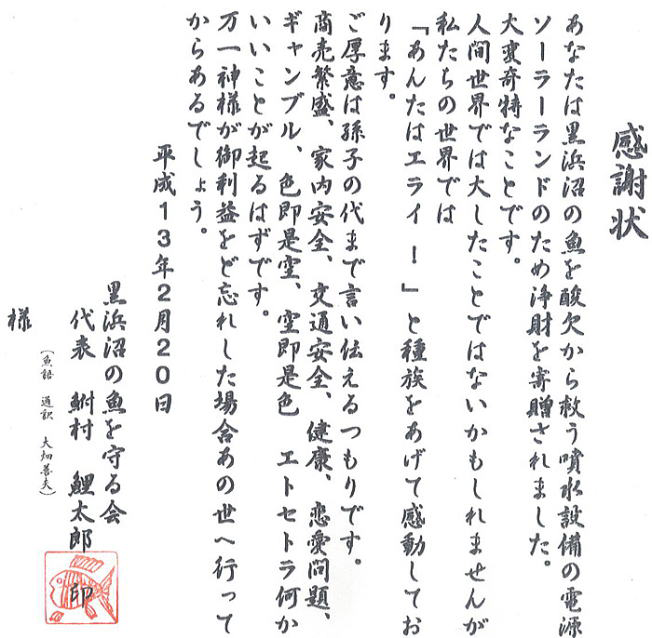 感謝状
あなたは黒浜沼の魚を酸欠から救う噴水設備の電源
ソーラーランドのため浄財を寄贈されました。
大変奇特なことです。
人間世界では大したことではないかもしれませんが
私たちの世界では
「あんたはエライ！」と種族をあげて感動してお
ります。
ご厚意は孫子の代まで言い伝えるつもりです。
商売繁盛、家内安全、交通安全、健康、恋愛問題、
ギャンブル、色即是空、空即是色　エトセトラ何か
いいことが起るはずです。
万一神様が御利益をど忘れした場合あの世へ行って
からあるでしょう。
平成13年2月20日
黒浜沼の魚を守る会
代表　鮒村　鯉太郎　印
（魚語　通訳　大畑善夫）
様